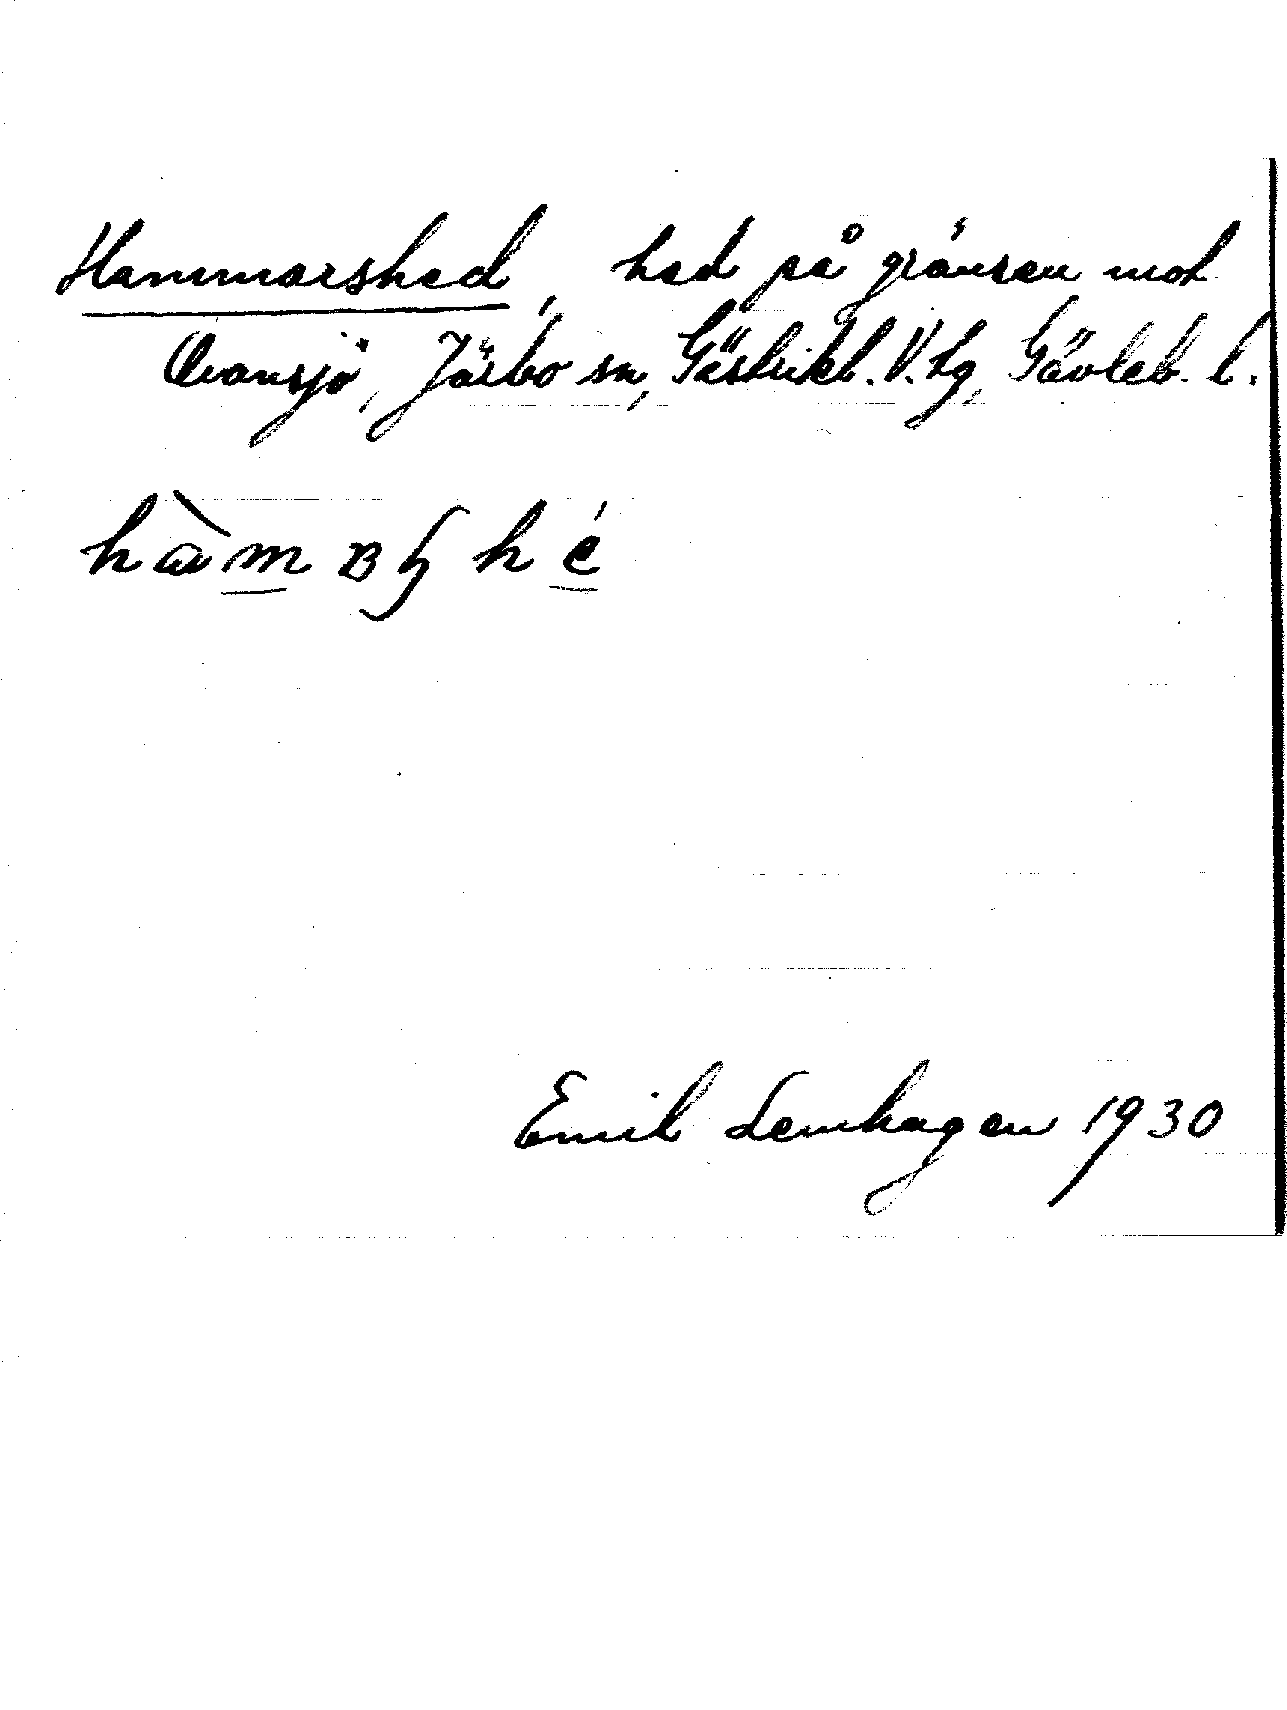 Hammarshed, hed på gränsen mot
Ovansjö, Järbo sn, Gästrikl. V. tg, Gävleb. l.
Emil Lemhagen 1930